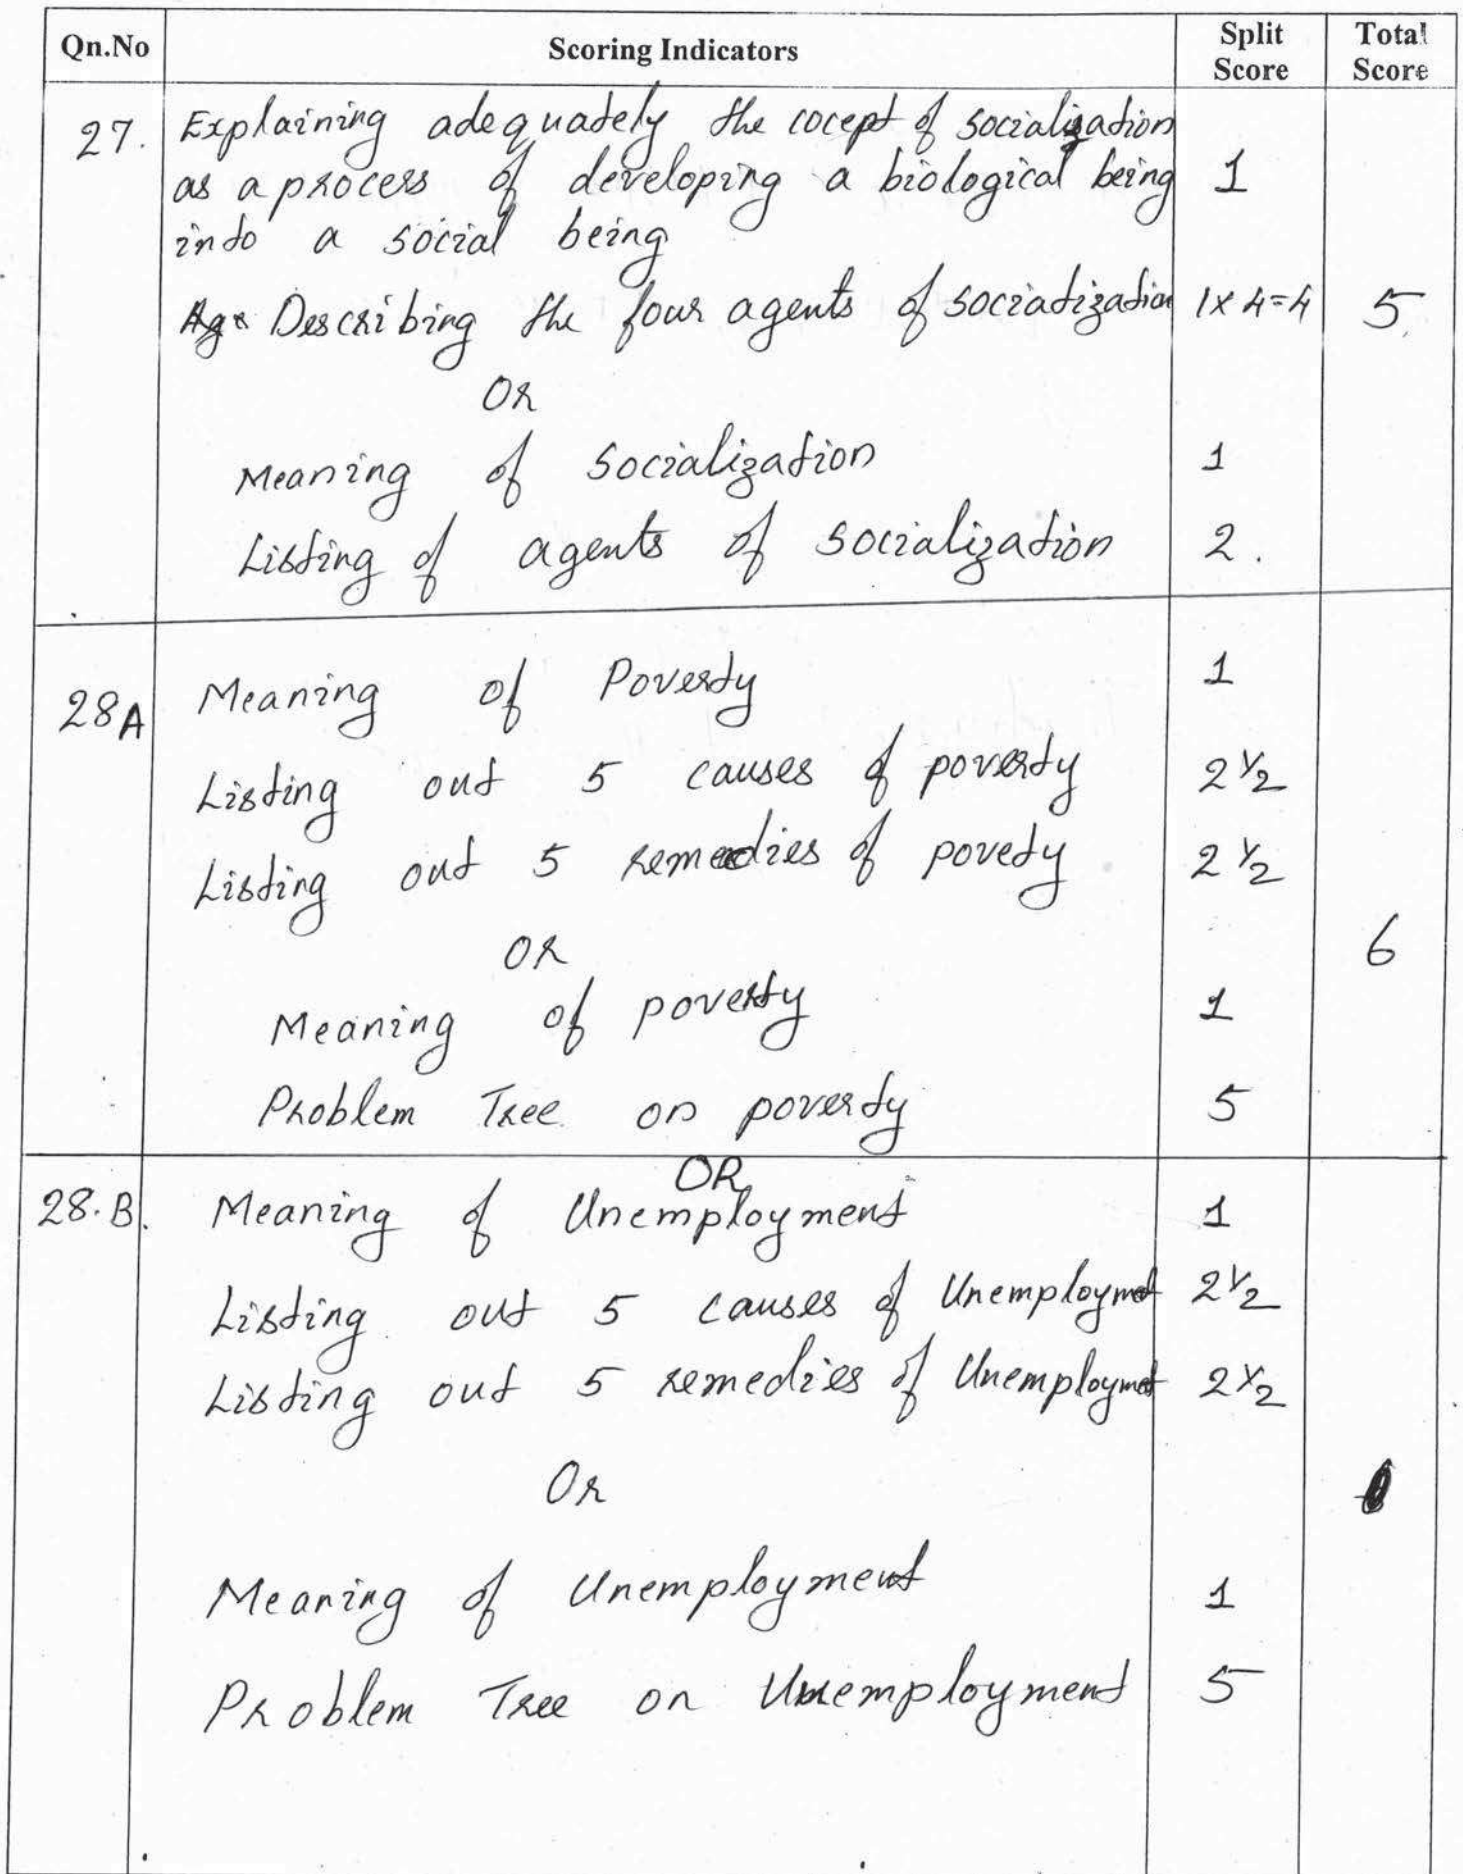 Qn.No Scoring Indicators Split Score Total Score
27. Explaining adequately the cocept of socialization
as a process of developing a biological being 1
into a social being
Describing the four agents of sociatization 1 x 4 = 4 5
Or
Meaning of Socialization 1
Listing of agents of Socialization 2.
28A Meaning of Poverty 1
Listing out 5 causes of poverty 2 1/2
Listing out 5 remedies of povety 2 1/2
OR 6
Meaning of poverty 1
Problem Tree on poverty 5
OR
28.B. Meaning of Unemployment 1
Listing out 5 causes of Unemploymet 2 1/2
Listing out 5 remedies of Unemploymet 2 1/2
Or
Meaning of Unemployment 1
Problem Tree on Unemployment 5